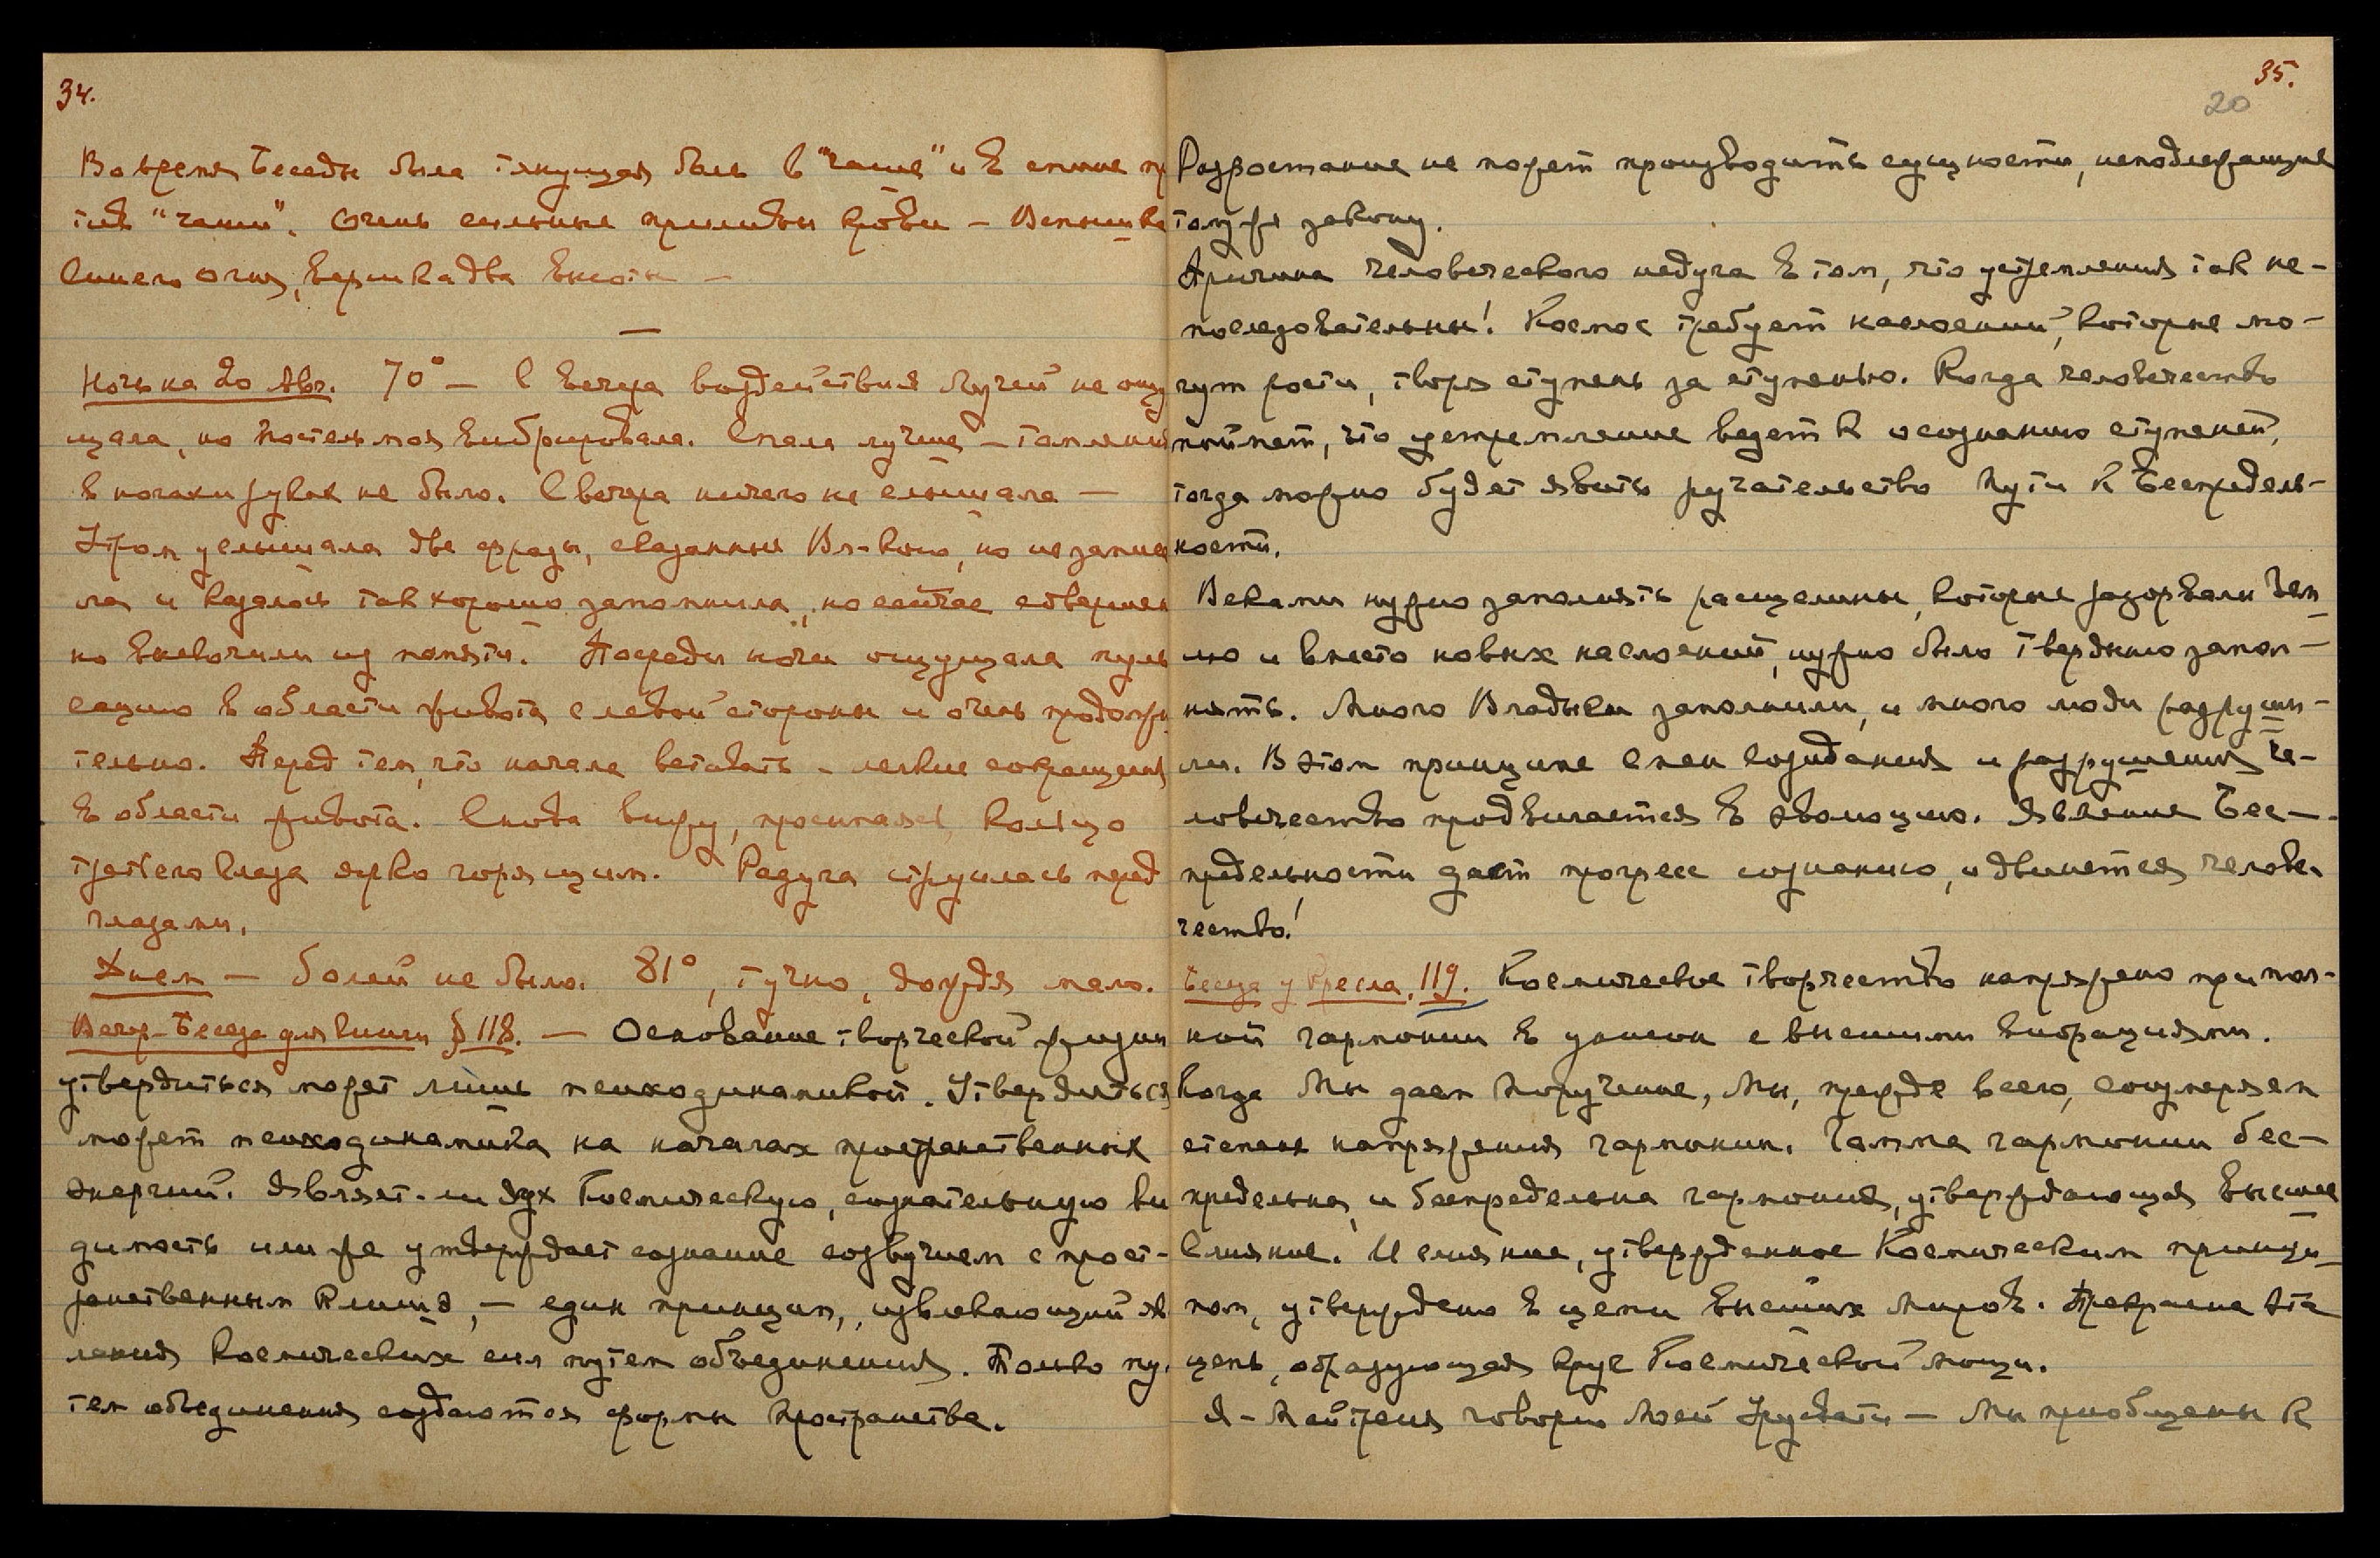 34.
Во время Беседы была тянущая боль в "чаше" и в спине пр
тив "чаши". Очень сильные приливы крови – Вспышка
синего огня, вершка два высоты –
Ночь на 20 Авг. 70° – С вечера воздействия Лучей не ощу
щала, но постель моя вибрировала. Спала лучше – томления
в ногах и руках не было. С вечера ничего не слышала –
Утром услышала две фразы, сказанные Вл-кою, но не записа
ла и казалось так хорошо запомнила, но сейчас совершен
но выскочили из памяти. Посреди ночи ощущала пуль
сацию в области живота с левой стороны и очень продолжи
тельно. Перед тем, что начала вставать – легкие сокращения
в области живота. Снова вижу, просыпаясь, кольцо
третьего глаза ярко горящим. Радуга струилась перед
глазами.
Днем – болей не было. 81°, тучно, дождя мало.
Вечер – Беседа для книги § 118. – Основание творческой жизни
утвердиться может лишь психодинамикой. Утвердиться
может психодинамика на началах пространственных
энергий. Являет-ли дух Космическую, сознательную ви
димость или же утверждает сознание созвучием с прост-
ранственным Клише, – един принцип, извлекающий яв
ления космических сил путем объединения. Только пу.
тем объединения создаются формы Пространства.
35.
20
Разростание не может производить сущности, неподлежащие
тому же закону.
Причина человеческого недуга в том, что устремления так не-
последовательны! Космос требует наслоений, которые мо-
гут рости, творя ступень за ступенью. Когда человечество
поймет, что устремление ведет к осознанию ступеней,
тогда можно будет явить ручательство Пути к Беспредель-
ности.
Веками нужно заполнять расщелины, которые разорвали Зем
лю и вместо новых наслоений, нужно было твердыню запол-
нять. Много Владыки заполнили, и много люди разруши-
ли. В этом принципе смен созидания и разрушения че-
ловечество продвигается в эволюцию. Явление Бес-
предельности даст прогресс сознанию, и двинется челове.
чество!
Беседа у Кресла, 119. Космическое творчество напряжено при пол-
ной гармонии в унисон с высшими вибрациями.
Когда Мы даем Поручение, Мы, прежде всего, соизмеряем
степень напряжения гармонии. Гамма гармонии бес-
предельна, и беспредельна гармония, утверждающая высшее
Слияние. И слияние, утвержденное Космическим принци-
пом, утверждено в цепи высших миров. Прекрасна эта
цепь, образующая круг Космической мощи.
Я – Майтрейя говорю Моей Урусвати – Мы приобщены к